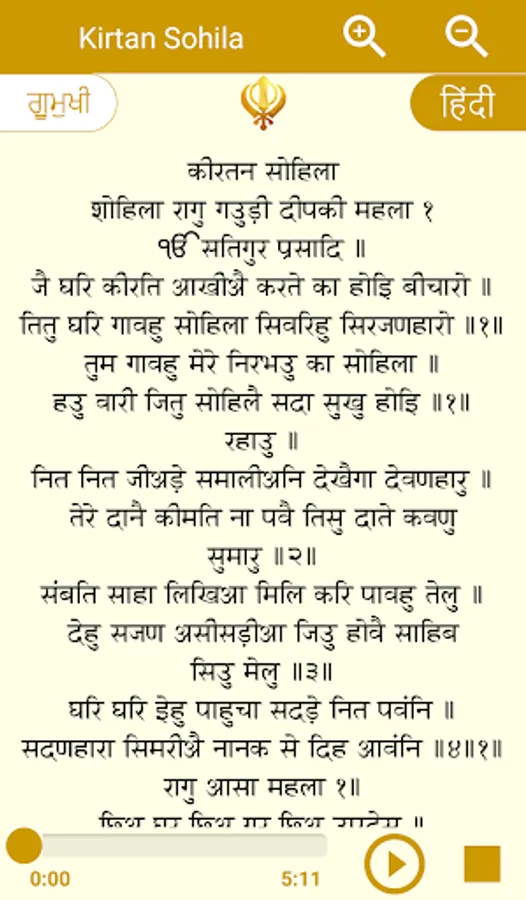 Kirtan Sohila
ਗੁਰਮੁਖੀ
हिंदी
कीरतन सोहिला
शोहिला रागु गउड़ी दीपकी महला १
ੴ सतिगुर प्रसादि ॥
जै घरि कीरति आखीअै करते का होइि बीचारो ॥
तितु घरि गावहु सोहिला सिवरिहु सिरजणहारो ॥१॥
तुम गावहु मेरे निरभउ का सोहिला ॥
हउ वारी जितु सोहिलै सदा सुखु होइि ॥१॥
रहाउ ॥
नित नित जीअड़े समालीअनि देखैगा देवणहारु ॥
तेरे दानै कीमति ना पवै तिसु दाते कवणु
सुमारु ॥२॥
संबति साहा लिखिआ मिलि करि पावहु तेलु ॥
देहु सजण असीसड़ीआ जिउ होवै साहिब
सिउ मेलु ॥३॥
घरि घरि इेहु पाहुचा सदड़े नित पवंनि ॥
सदणहारा सिमरीअै नानक से दिह आवंनि ॥४॥१॥
रागु आसा महला १॥
0:00
5:11